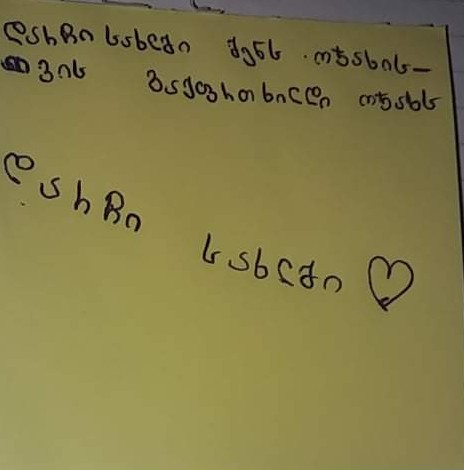 დარჩი სახლში შენს ოჯახის-
თვის გაუფრთხილდი ოჯახს
დარჩი
სახლში ♡